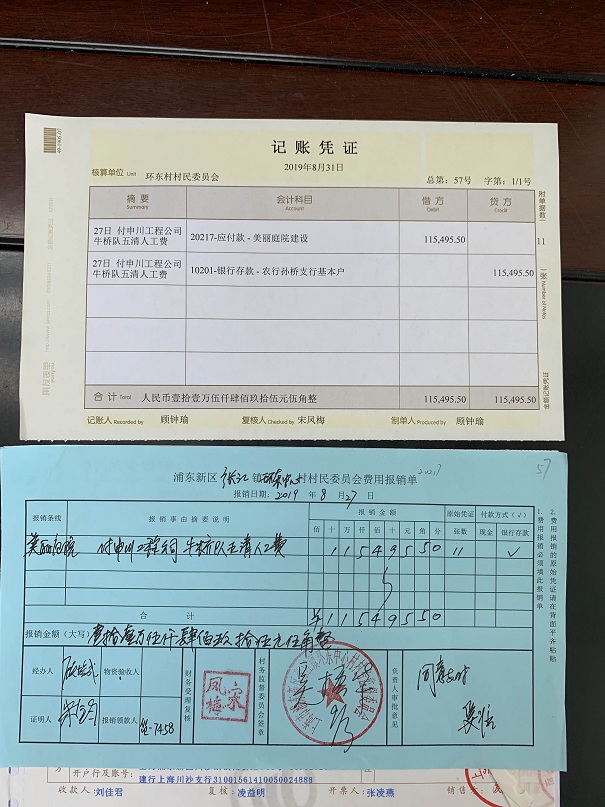 记账凭证
2019年8月31日
核算单位 Unit 环东村村民委员会
总第：57号 字第：1/1号
摘要 Summary 会计科目 Account 借方 Debit 贷方 Credit
27日 付申川工程公司牛桥队五清人工费 20217-应付款 - 美丽庭院建设 115,495.50
27日 付申川工程公司牛桥队五清人工费 10201-银行存款 - 农行孙桥支行基本户 115,495.50
合计 Total 人民币壹拾壹万伍仟肆佰玖拾伍元伍角整 115,495.50 115,495.50
记账人 Recorded by 顾钟瑜 复核人 Checked by 宋凤梅 制单人 Produced by 顾钟瑜
11
浦东新区张江镇环东中心村村民委员会费用报销单
57
报销日期：2019年8月27日
报销条线 报销事由摘要说明 报销金额 原始凭证 付款方式（√）
佰 十 万 仟 佰 十 元 角 分 张数 现金 银行存款
美丽庭院 付申川工程公司 牛桥队五清人工费 11549550 11 √
合计 ¥11549550
报销金额（大写）壹拾壹万伍仟肆佰玖拾伍元伍角整
经办人 物资验收人 财务受理复核 村务监督委员会签章 负责人审批意见
宋凤梅
同意支付
证明人 报销领款人 7458
1.费用报销必须填此报销单
2.费用报销的原始凭证请在背面平齐粘贴
开户行及账号： 建行上海川沙支行31001561410050024888
收款人：刘佳君 复核：凌益明 开票人：张凌燕 销售方：